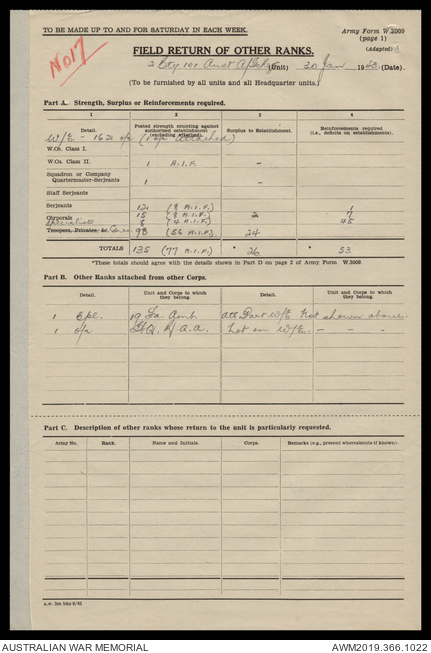 TO BE MADE UP TO AND FOR SATURDAY IN EACH WEEK.
Army Form W.3009
(page 1)
(Adapted)
No 17
FIELD RETURN OF OTHER RANKS.
2 Bty 101 Aust A/Tk Rgt (Unit) 30 Jan 1943 (Date).
(To be furnished by all units and all Headquarter units.)
Part A. Strength, Surplus or Reinforcements required.
1 2 3 4
Detail. Posted strength counting against authorised establishment (excluding attached). Surplus to Establishment. Reinforcements required (i.e., deficits on establishments).
W/E - 162 o/r (1 o/r attached)
W.Os. Class I.
W.Os. Class II. 1 A.I.F. –
Squadron or Company
Quartermaster-Serjeants 1 –
Staff Serjeants
Serjeants 12 (8 A.I.F.) 1
Corporals 15 (8 A.I.F.) 2 7
Specialists 8 (4 A.I.F.) 45
Troopers, Privates, &c. 98 (56 A.I.F.) 24
TOTALS 135 (77 A.I.F.) * 26 * 53
*These totals should agree with the details shown in Part D on page 2 of Army Form W.3009.
Part B. Other Ranks attached from other Corps.
Detail. Unit and Corps to which they belong. Detail. Unit and Corps to which they belong.
1 Cpl. 19 Fd Amb. att Part W/E Not shown above.
1 o/r H.Q. R.A.A. Not on W/E. – – –
Part C. Description of other ranks whose return to the unit is particularly requested.
Army No. Rank. Name and Initials. Corps. Remarks (e.g., present whereabouts if known).
AUSTRALIAN WAR MEMORIAL AWM2019.366.1022